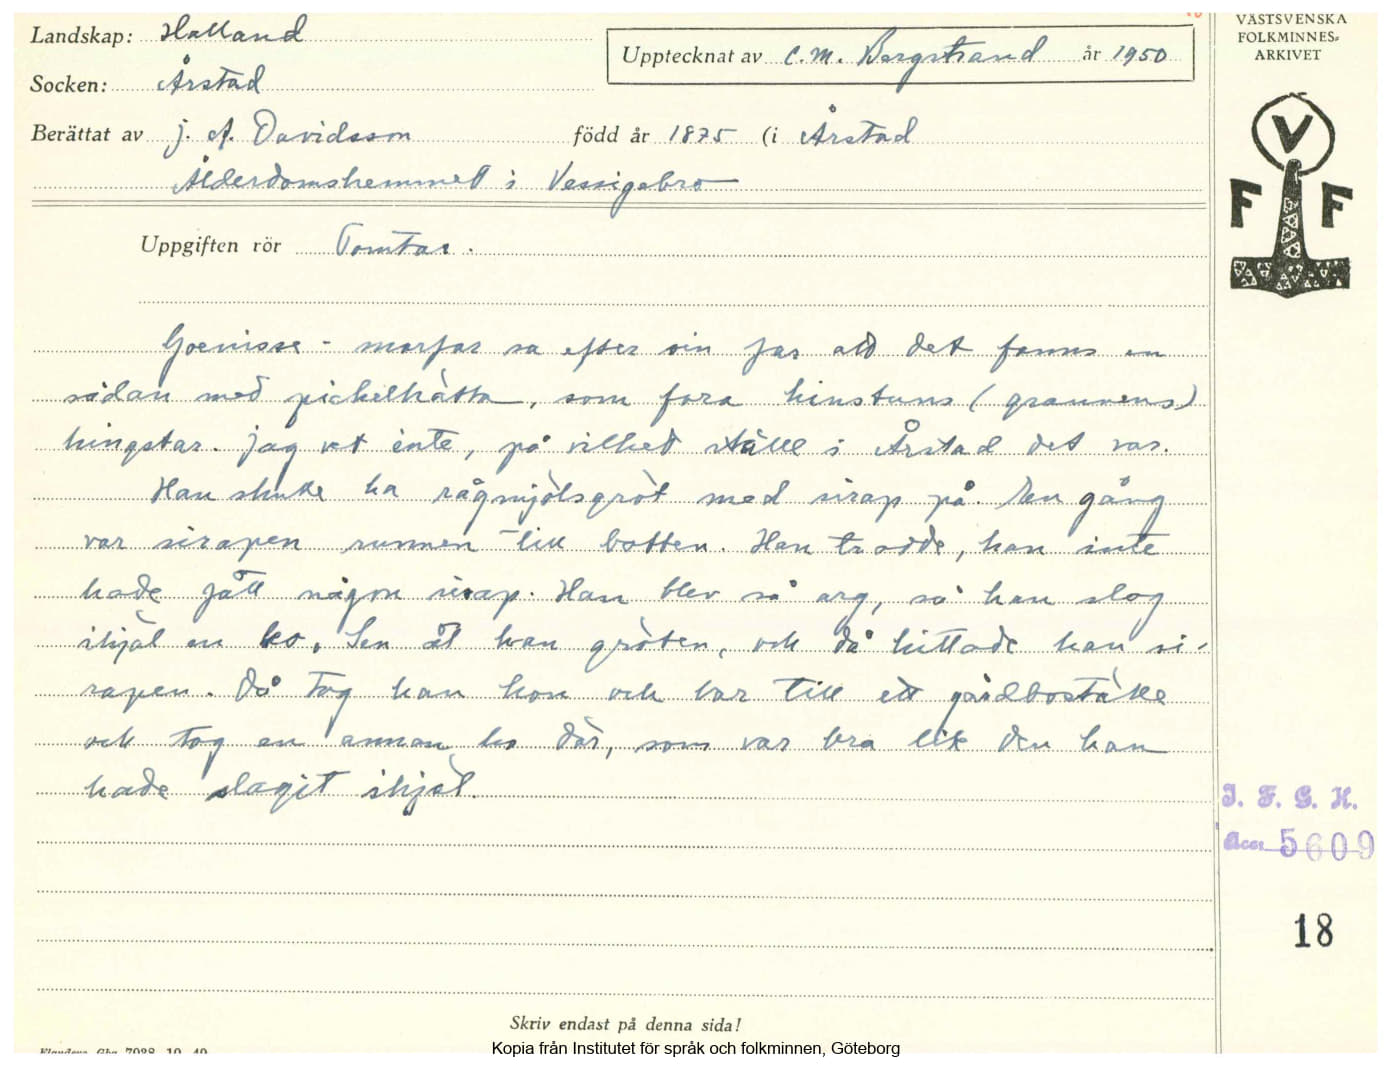 Landskap: Halland
Socken: Årstad
Upptecknat av C. M. Bergstrand år 1950
Berättat av J. A. Davidsson född år 1875 (i Årstad
Ålderdomshemmet i Vessigebro
Uppgiften rör Tomtar.
Goenisse - morfar sa efter sin far att det fanns en
sådan med pickelhätta, som fora hinstuns (grannens)
hingstar. Jag vet inte, på vilket ställe i Årstad det var.
Han skulle ha rågmjölsgröt med sirap på. En gång
var sirapen runnen till botten. Han trodde, han inte
hade fått någon sirap. Han blev så arg, så han slog
ihjäl en ko. Sen åt han gröten, och då hittade han si-
rapen. Då tog han kon och bar till ett gårdboställe
och tog en annan ko där, som var bra lik den han
hade slagit ihjäl.
Skriv endast på denna sida!
VÄSTSVENSKA
FOLKMINNES-
ARKIVET
V
F F
I. F. G. H.
Acc. 5609
18
Kopia från Institutet för språk och folkminnen, Göteborg